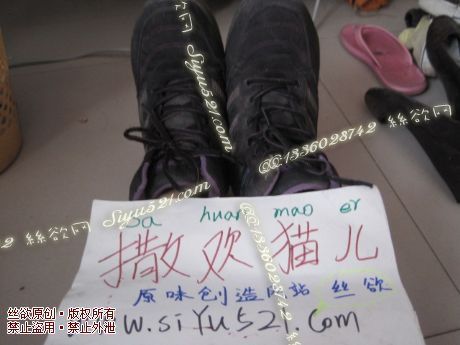 Siyu521.com
QQ:1336028742 絲欲网
Siyu521.com
Sa huan mao er
撒欢猫儿
原味创造网站 丝欲
W.siYu521.Com
丝欲原创·版权所有
禁止盗用·禁止外泄